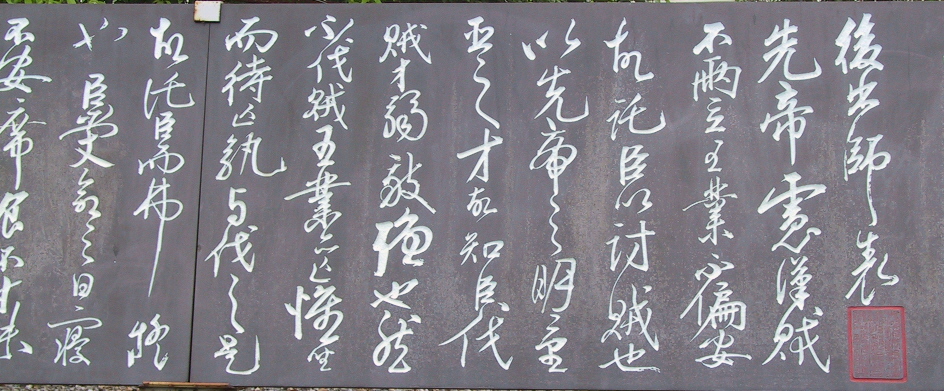 後出師表
先帝慮漢賊
不兩立王業不偏安
故託臣以討賊也
以先帝之明量
臣之才故知臣伐
賊才弱敵強也然
不伐賊王業亦亡惟坐
而待亡孰与伐之是
故託臣而弗疑
也臣受命之日寢
不安席食不甘味